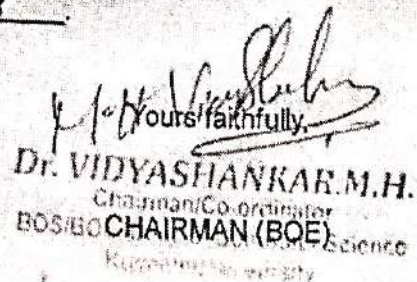 Yours faithfully,
Dr. VIDYASHANKAR.M.H.
Chairman/Co-ordinator
BOS/BO CHAIRMAN (BOE) Science